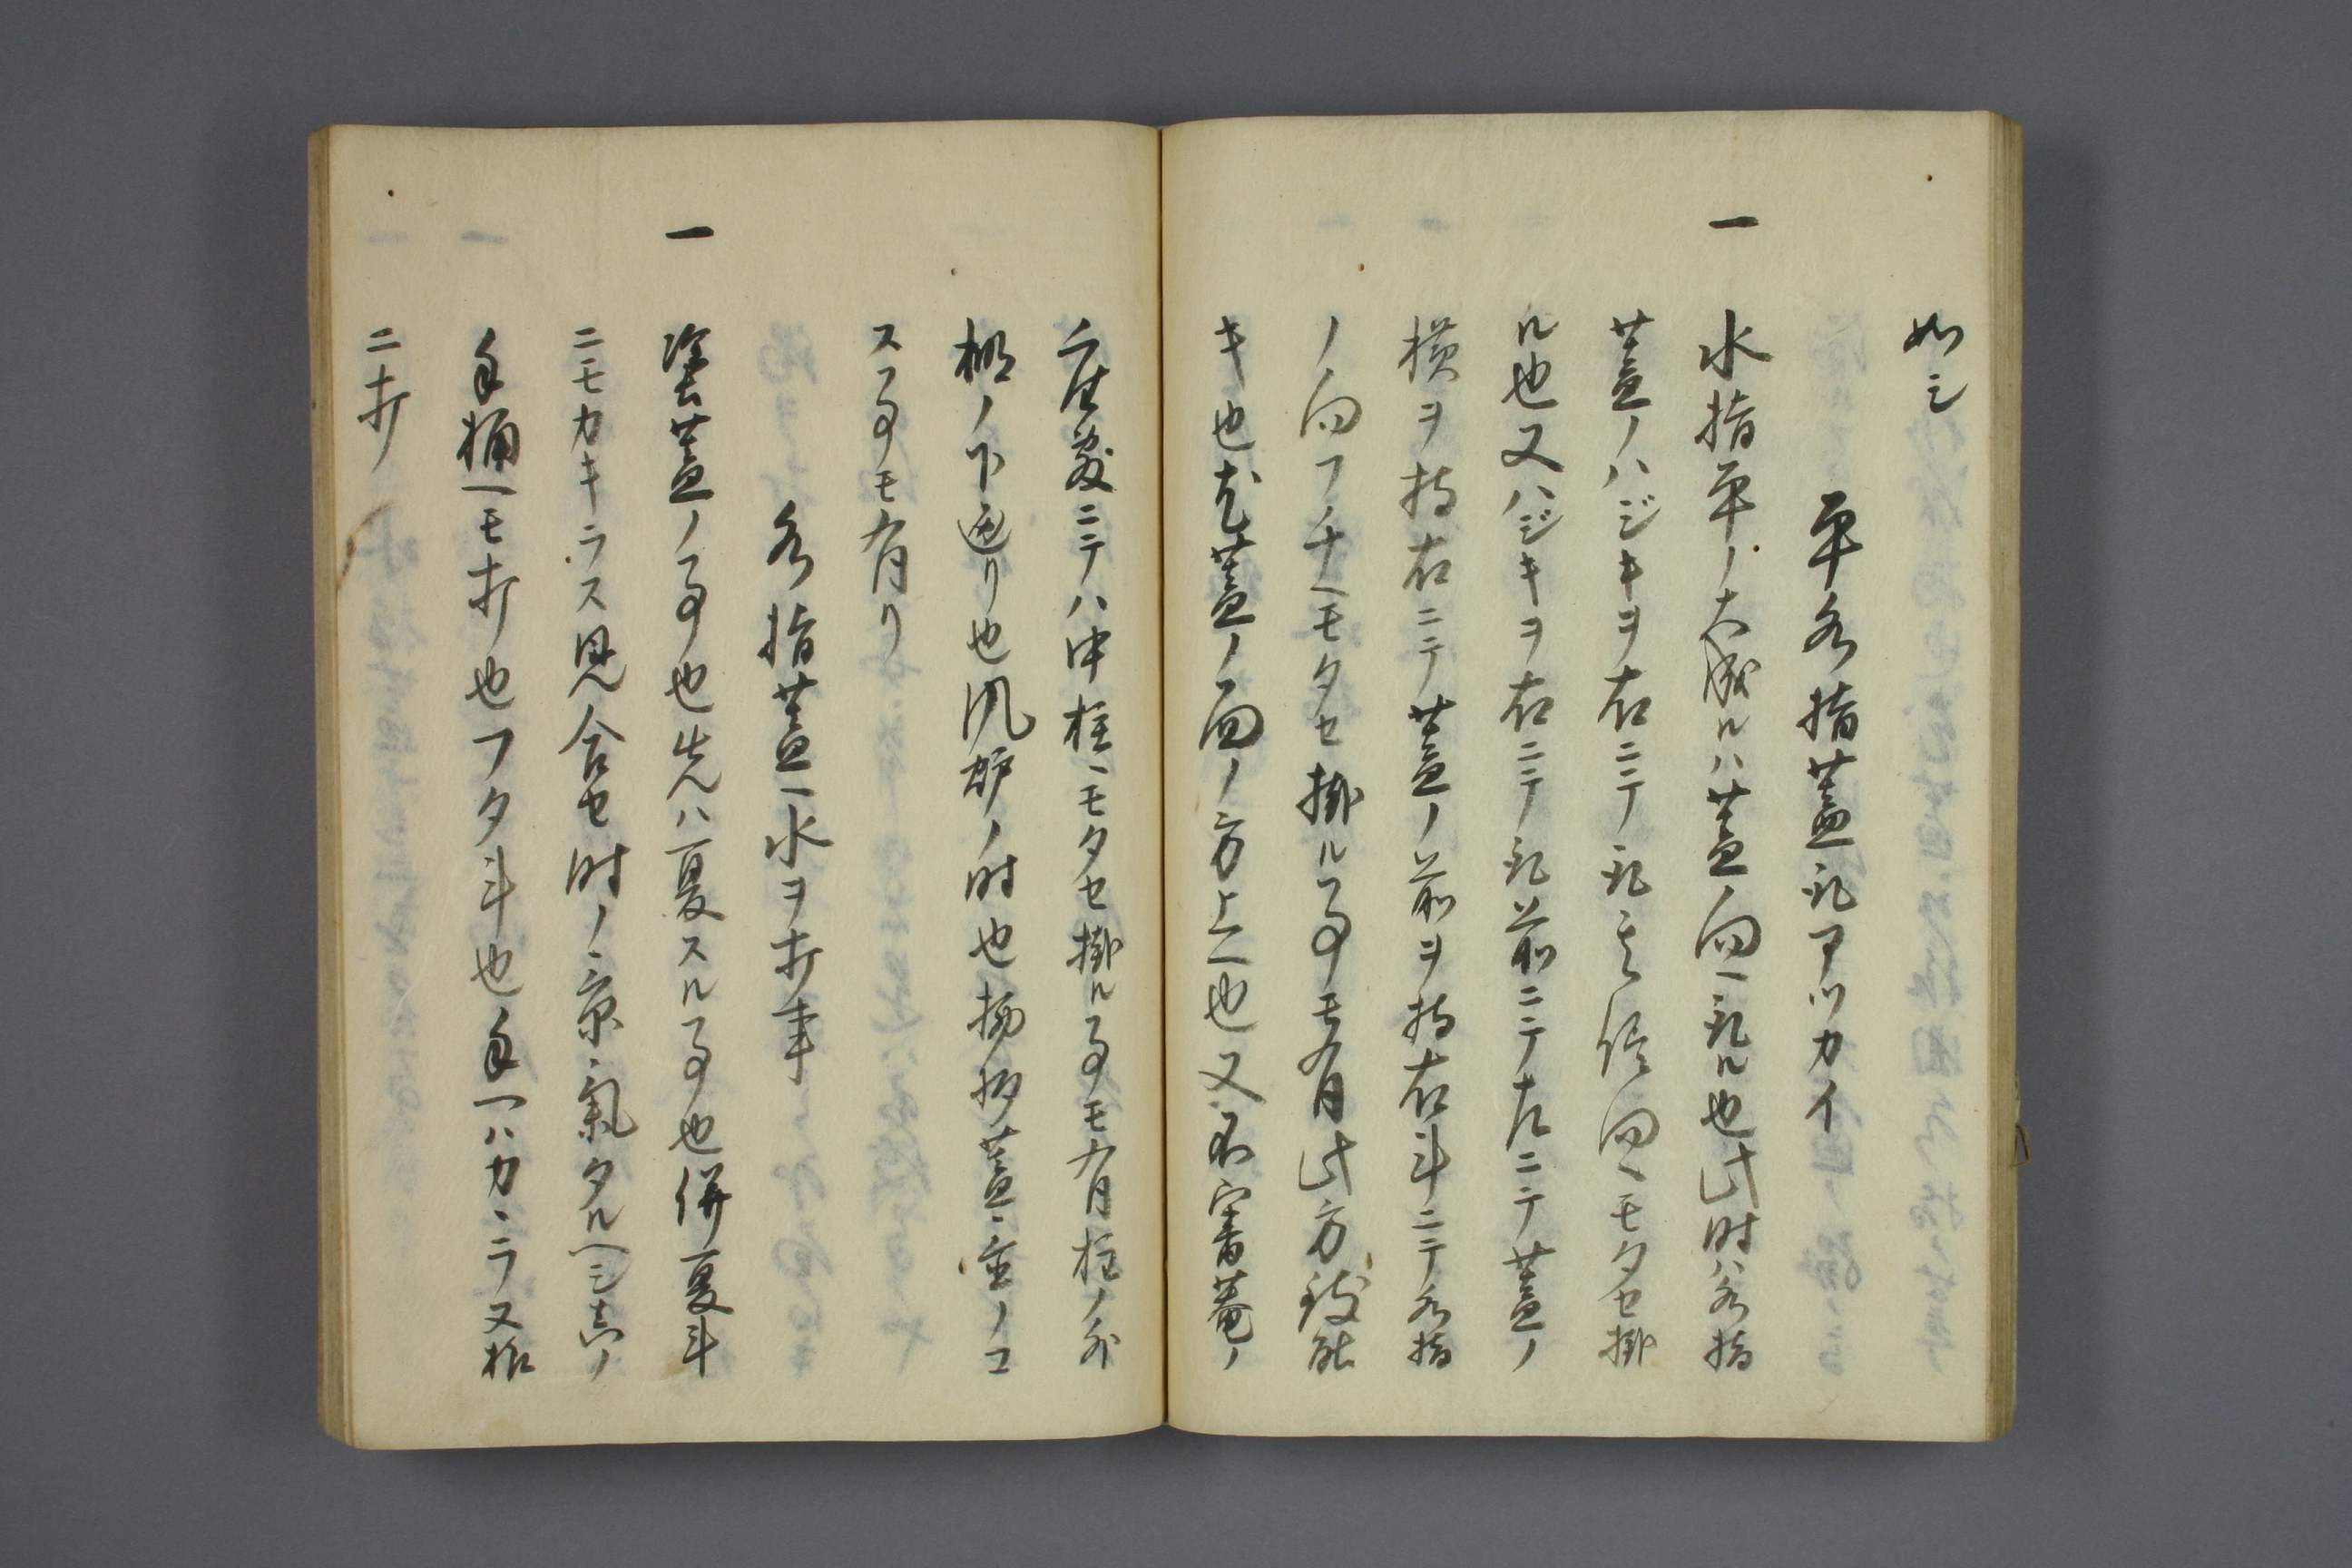 如シ
平水指蓋取アツカイ
一 水指平ノ大成ルハ蓋ノ向ヘ取ル也此時ハ水指
蓋ノハジキヲ右ニテ取其侭向ヘモタセ掛
ル也又ハジキヲ右ニテ取前ニテ左ニテ蓋ノ
横ヲ持右ニテ蓋ノ前ヲ持右斗ニテ水指
ノ向フノ方ヘモタセ掛ル事モ有此方致能
キ也尤蓋ノ面ノ方上ヘ也又不審菴ノ
座敷ニテハ中柱ヘモタセ掛ル事モ有柱ノ外
棚ノ下通リ也風炉ノ時也
スル事モ有リ
水指蓋ヘ水ヲ打事
一 塗蓋ノ事也先ハ夏スル事也併夏斗
ニモカキラス見合セ時ノ景気タルヘシ真ノ
手桶ヘモ打也フタ斗也手ヘハカヽラ又様
ニ打